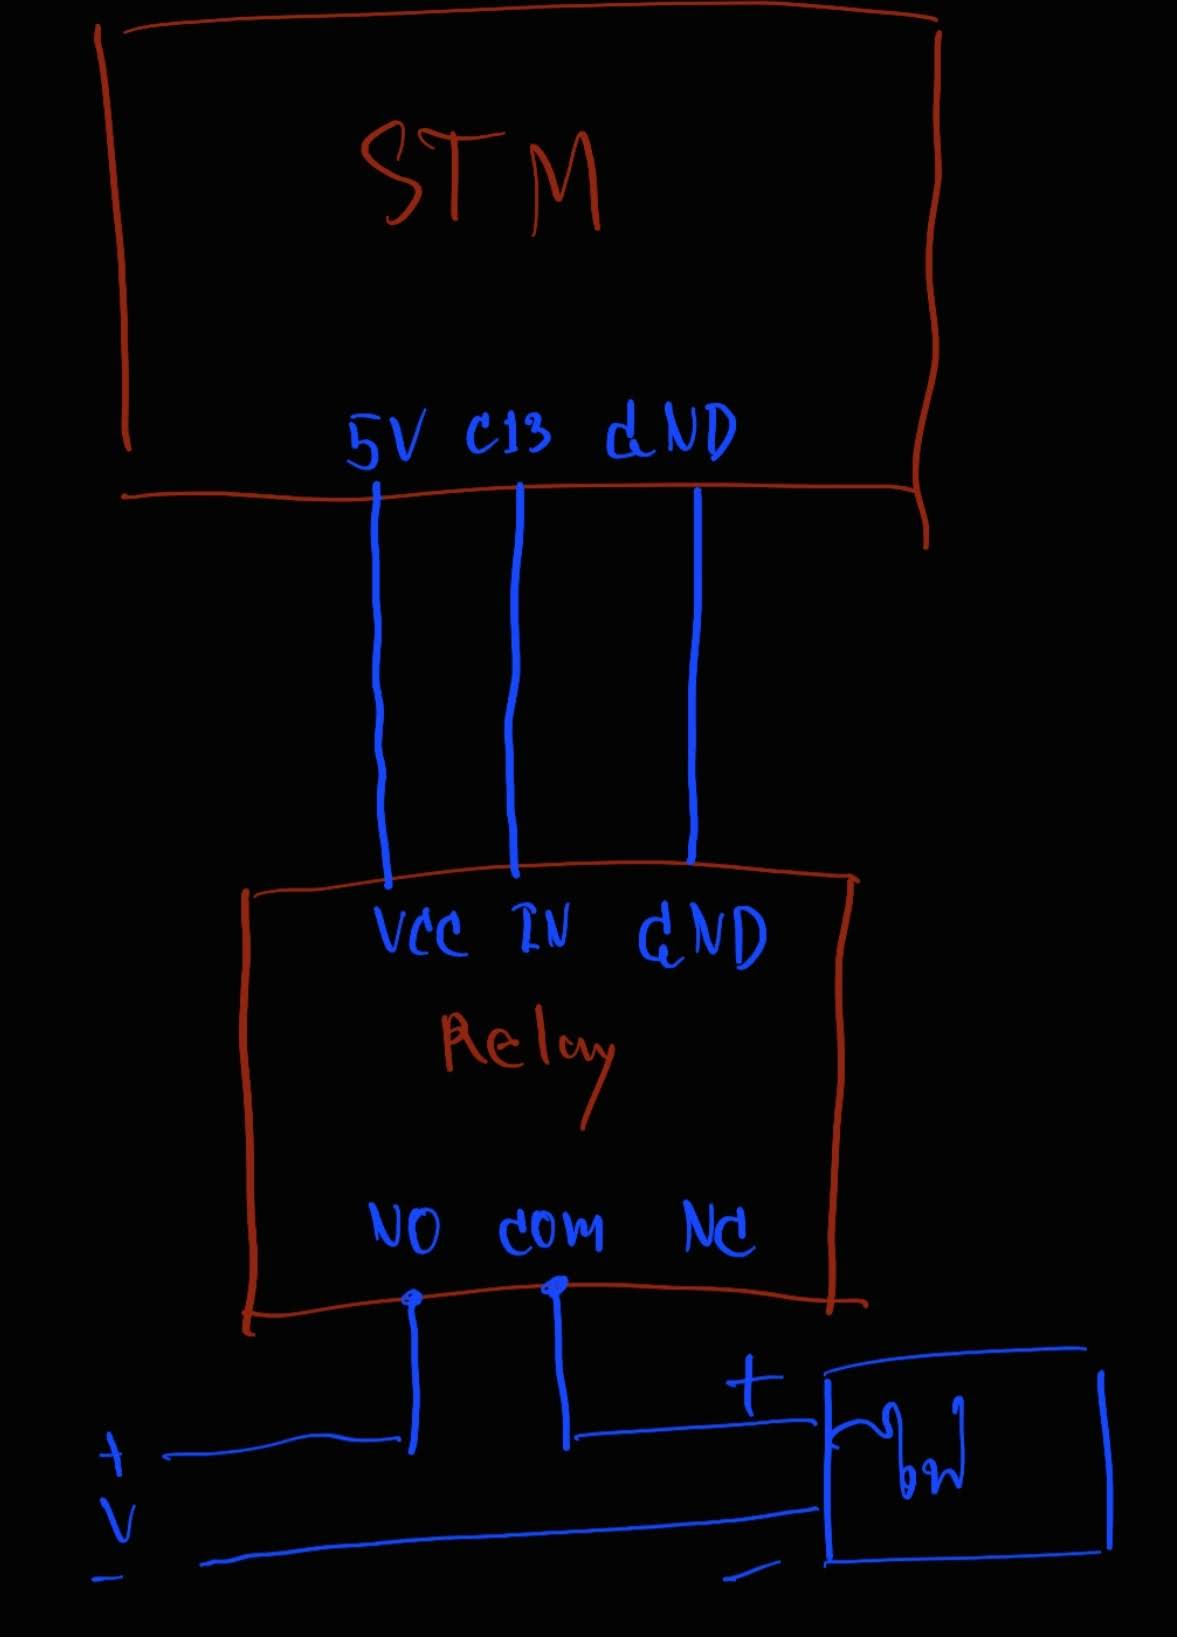 STM
5V C13 GND
VCC IN GND
Relay
NO COM NC
+
+
V
-
-